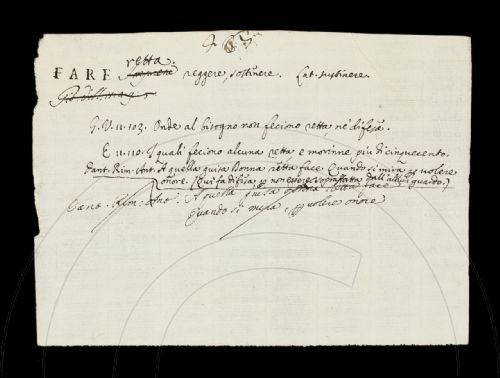 retta.
FARE reggere, sostinere. Lat. sustinere.
G. V. 11. 103. Onde al bisogno non feciono retta, nè difesa.
E 11. 110. I quali feciono alcuna retta e morinne più di cinquecento.
Dant. Rim. Ant. A quella guisa Donna retta face Quando si mira per volere
onore. (Qui fa difesa per non essere sopraffatta dall' altrui guardo.)
Rim. Ant. A quella guisa donna retta face
Quando si mira, per volere onore